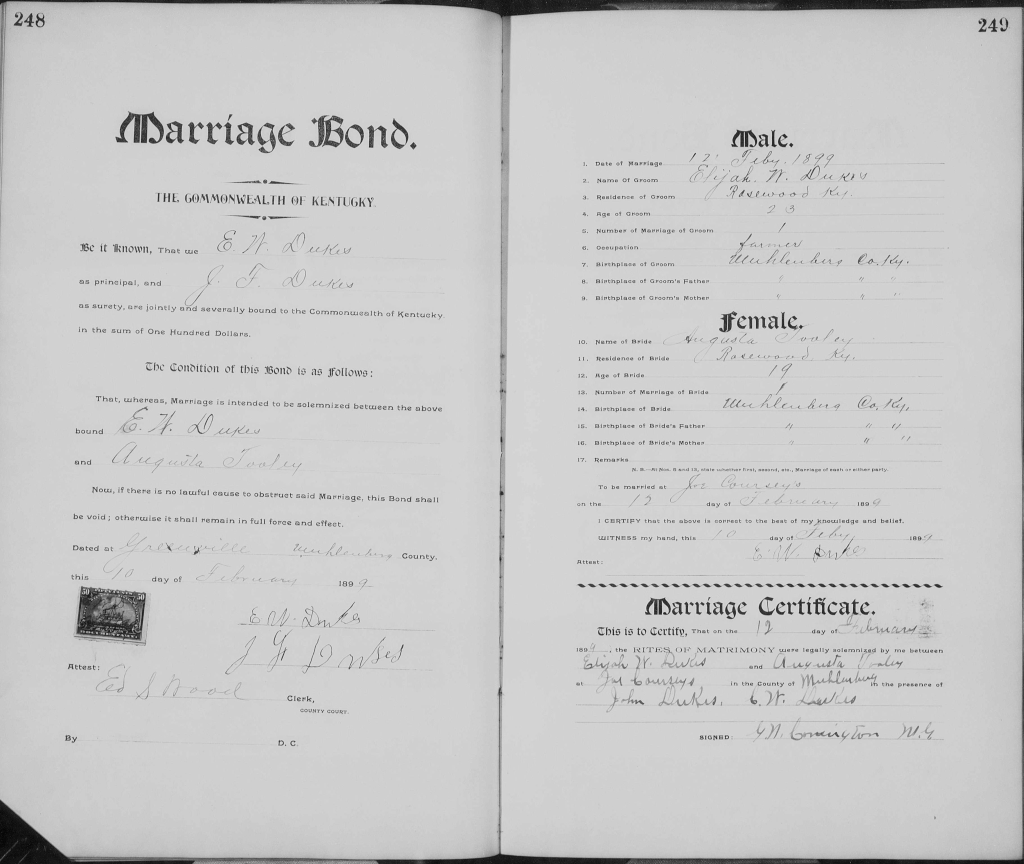 248
Marriage Bond.
THE COMMONWEALTH OF KENTUCKY.
Be it Known, That we E. W. Dukes
as principal, and J. F. Dukes
as surety, are jointly and severally bound to the Commonwealth of Kentucky,
in the sum of One Hundred Dollars.
The Condition of this Bond is as Follows:
That, whereas, Marriage is intended to be solemnized between the above
bound E. W. Dukes
and Augusta Tooley
Now, if there is no lawful cause to obstruct said Marriage, this Bond shall
be void; otherwise it shall remain in full force and effect.
Dated at Greenville Muhlenberg County,
this 10 day of February 1899
E W. Dukes
J F Dukes
Attest:
Ed S Wood Clerk,
COUNTY COURT.
By D. C.
249
Male.
1. Date of Marriage 12 Feby. 1899
2. Name Of Groom Elijah. W. Dukes
3. Residence of Groom Rosewood Ky.
4. Age of Groom 23
5. Number of Marriage of Groom 1
6. Occupation farmer
7. Birthplace of Groom Muhlenberg Co. Ky.
8. Birthplace of Groom's Father " " "
9. Birthplace of Groom's Mother " " "
Female.
10. Name of Bride Augusta Tooley
11. Residence of Bride Rosewood Ky.
12. Age of Bride 19
13. Number of Marriage of Bride 1
14. Birthplace of Bride Muhlenberg Co. Ky.
15. Birthplace of Bride's Father " " "
16. Birthplace of Bride's Mother " " "
17. Remarks
N. B.—At Nos. 5 and 13, state whether first, second, etc., Marriage of each or either party.
To be married at Joe Courseys
on the 12 day of February 1899
I CERTIFY that the above is correct to the best of my knowledge and belief.
WITNESS my hand, this 10 day of Feby 1899
E. W. Dukes
Attest:
Marriage Certificate.
This is to Certify, That on the 12 day of February
1899, the RITES OF MATRIMONY were legally solemnized by me between
Elijah W. Dukes and Augusta Tooley
at Joe Courseys in the County of Muhlenburg in the presence of
John Dukes, C. W. Dukes
SIGNED: G. W. Covington M. G